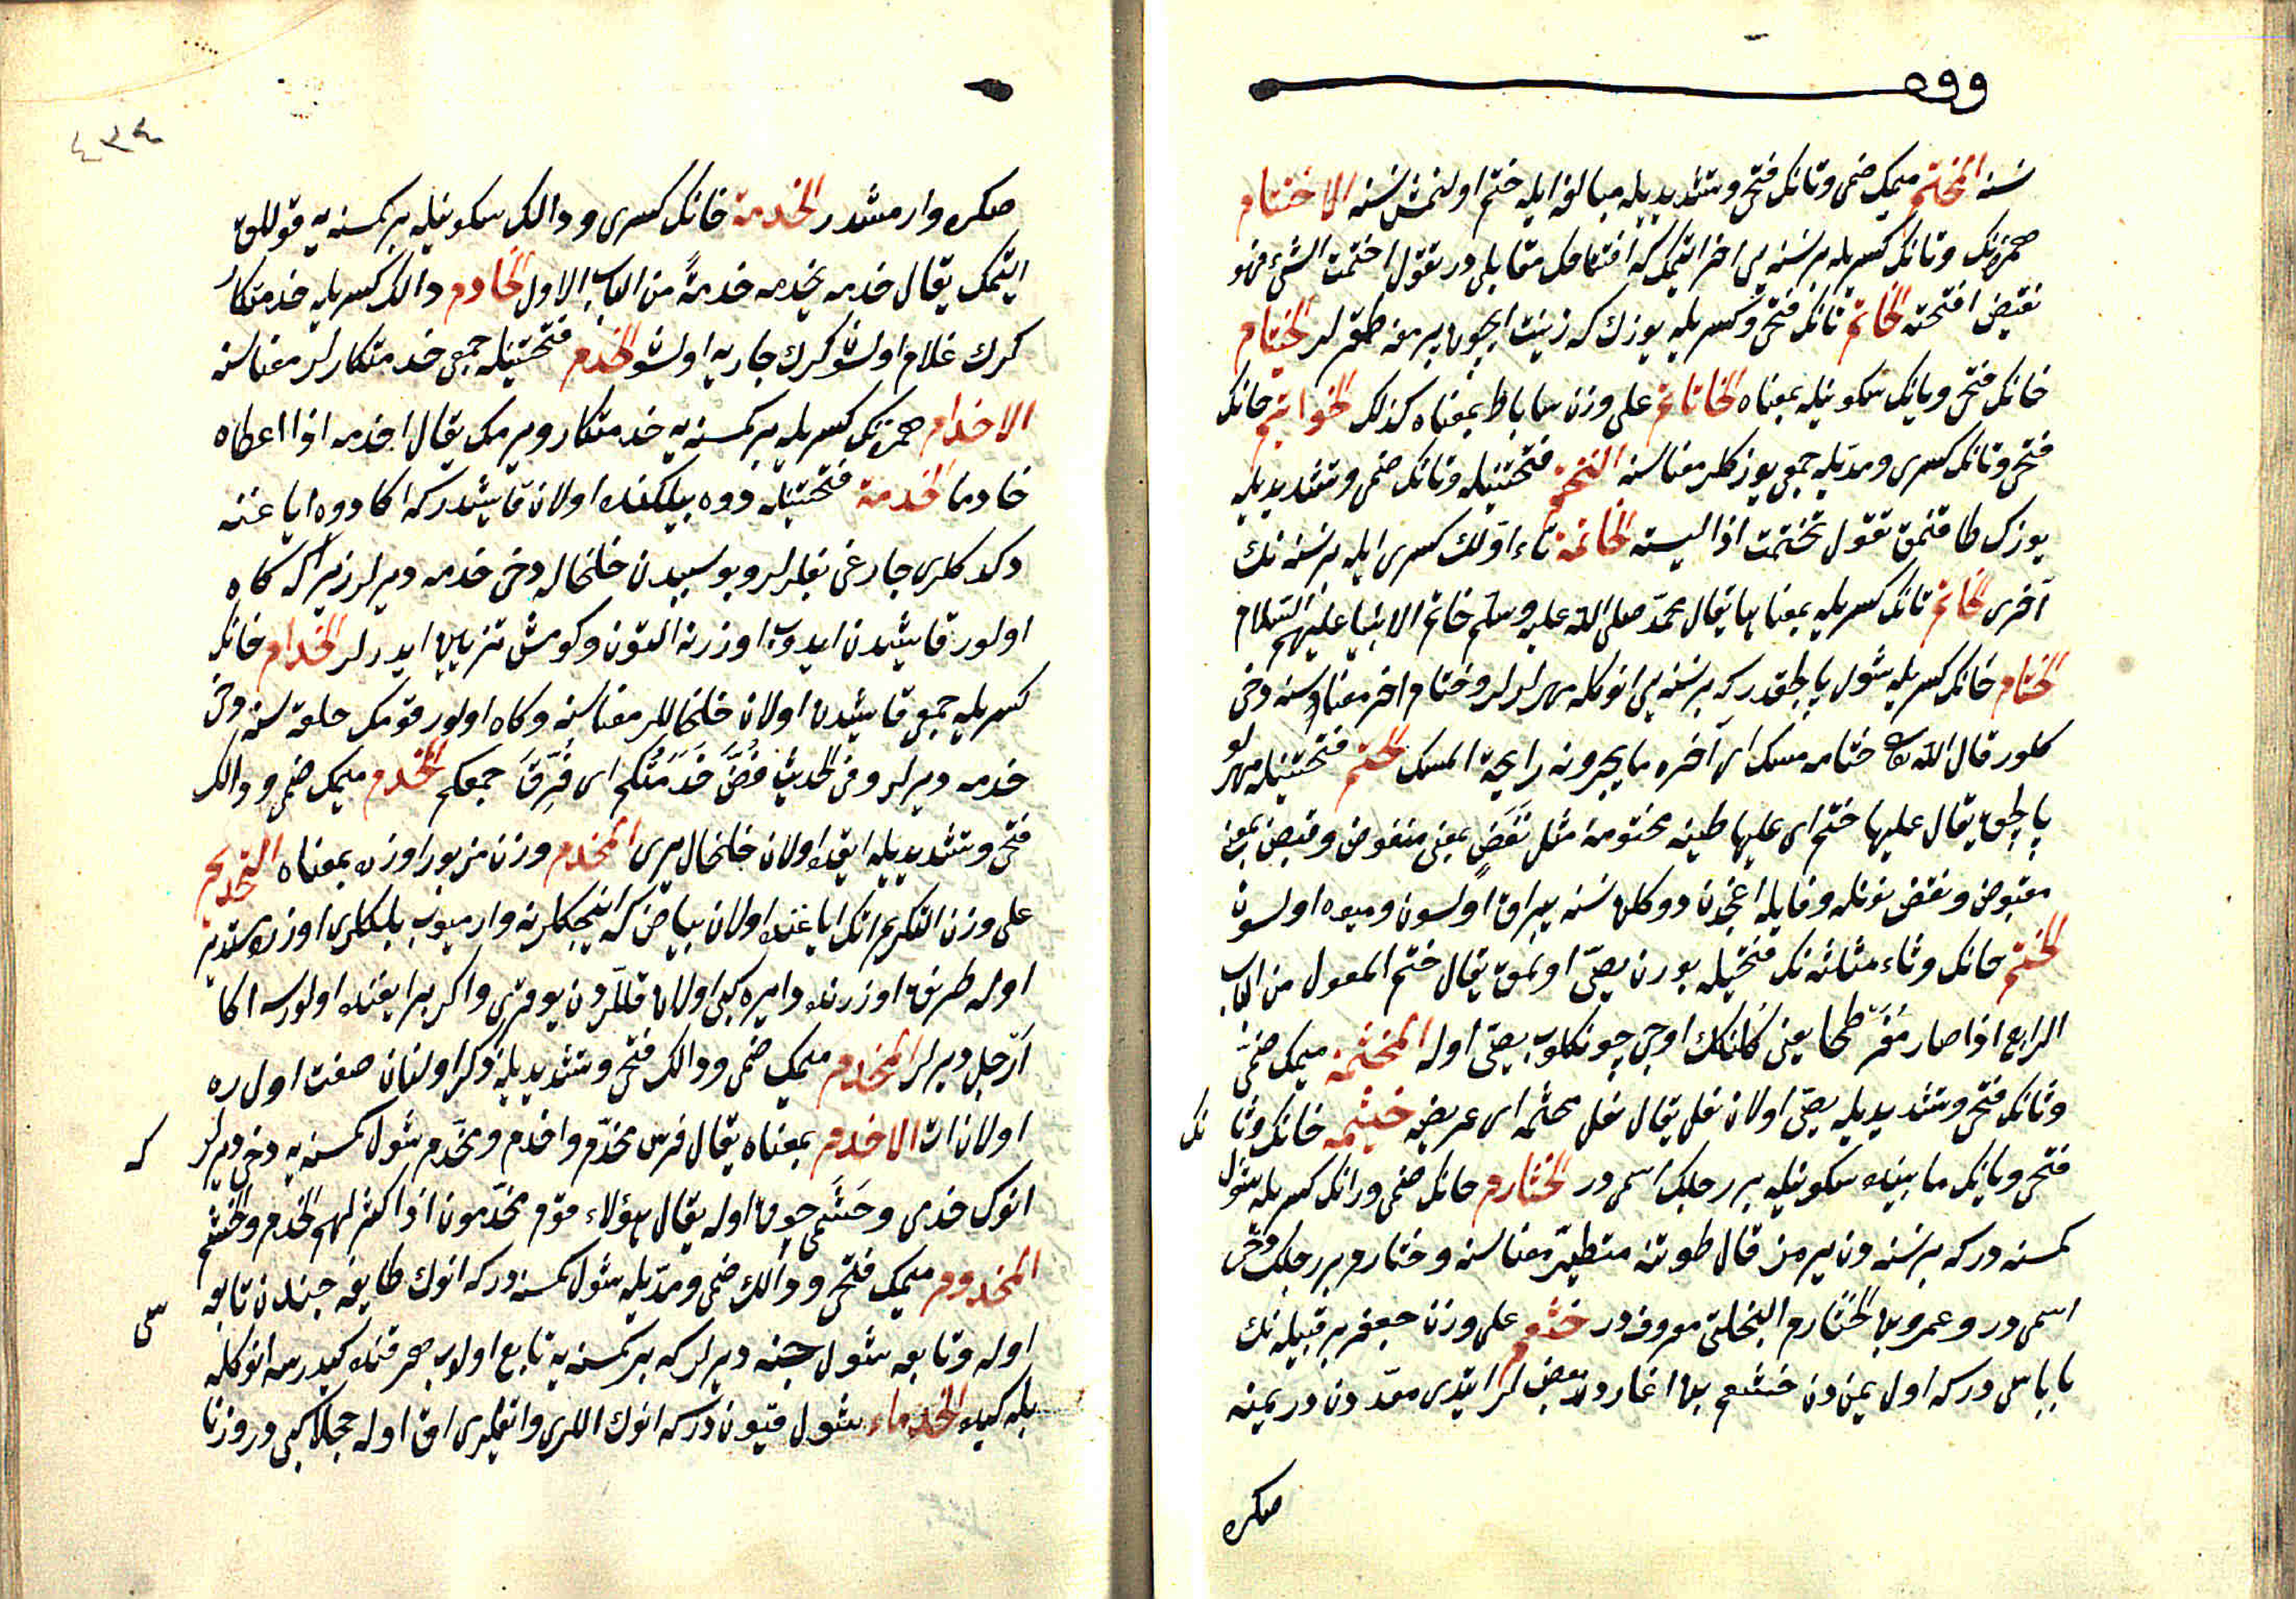 ووه
نسنه المختم ميمك ضمى وتانك فتحى وتشديديله مبالغه ايله ختم اولنمش نسنه الاختتام
همزنك وتانك كسريله برنسنه يى اخر ايتمك كه افتتاحك مقابلى در تقول اختتمت الشئ فهو
نقيض افتتحته الخاتم تانك فتحى وكسريله يوزك كه زينت ايچون پرمغه طقرلر الخيتام
خانك فتحى ويانك سكونيله بمعناه الخاتام على وزن ساباط بمعناه كذلك الخواتيم خانك
فتحى وتانك كسرى ومدّيله جمعى يوزكلر معناسنه التختم فتحتينيله وتانك ضمى وتشديديله
يوزك طاقنمق تقول تختمت اذا لبسته الخاتمة تاء اوّلك كسرى ايله برنسنه نك
آخرى الخاتم تانك كسريله بمعناها يقال محمّد صلى الله عليه وسلّم خاتم الانبيا عليهم السّلام
الختام خانك كسريله شول پالچقدر كه برنسنه يى انوكله مهرلرلر وختام اخر معناسنه دخى
كلور قال الله تعا ختامه مسك اى آخره ما يجدونه رايحة المسك الختم فتحتينيله مهرلو
پالچق يقال عليها ختم اى عليها طينه مختومة مثل نَفَضٍ بمعنى منفوض وقبض بمعنى
مقبوض ونفض نونله وفايله اغجدن دوكلن نسنه يپراق اولسون وميوه اولسون
الخثم خانك وثاء مثلثه نك فتحيله بورن يصّى اولمق يقال خثم المعول من الباب
الرابع اذا صار مُفَرْطَحا يعنى كلنك اوجى چونكلوب يصّى اوله المخثمه ميمك ضمى
وثانك فتحى وتشديديله يصّى اولان نعلى يقال نعل مخثمه اى عريضه خيثمه خانك وثا نك
فتحى ويانك مابينده سكونيله بر رجلك اسمى در الخثارم خانك ضمى ورانك كسريله شول
كمسنه دركه برنسنه دن يرمز قال طوتنه متطيّر معناسنه وخثارم بر رجلك دخى
اسمى در وعمرو بن الخثارم البجلى معروفدر خثعم على وزن جعفر بر قبيله نك
باباسى دركه اول يمن دن خثعم بن انماردر بعضلر ايتدى معدّدن در يمنه
صكره
٤٣٤
صكره وارمشدر الخدمة خانك كسرى ودالك سكونيله بر كمسنه يه قوللق
ايتمك يقال خدمه يخدمه خدمةً من الباب الاول الخادم دالك كسريله خدمتكار
كرك غلام اولسون كرك جاريه اولسون الخدم فتحتينيله جمعى خدمتكارلر معناسنه
الاخدام همزنك كسريله بر كمسنه يه خدمتكار ويرمك يقال اخدمه اذا اعطاه
خادما الخدمة فتحتينيله دوه بيلكنده اولان قايشدركه اكا دوه اياغنه
دكدكلرى چارغى بغلرلر وبوسببدن خلخاله دخى خدمه ديرلر زيرا كه كاه
اولور قايشدن ايدوب اوزرنه التون وكومش تزيين ايدرلر الخدام خانك
كسريله جمعى قايشدن اولان خلخاللر معناسنه وكاه اولور قومك حلقه سنه دخى
خدمه ديرلر وفى الحديث فُضَّ خَدَمَتُكم اى فُرِّقَ جمعكم المخدم ميمك ضمى ودالك
فتحى وتشديديله ايقده اولان خلخال يرى المخدم وزن مزبور اوزره بمعناه التخديم
على وزن التكريم اتك اياغنده اولان بياض كه اينجكلرنه وارميوب بلكلرى اوزره مستدير
اوله طرنق اوزرنده دايره كبى اولان قللردن يوقرى واكر بر ايقنده اولورسه اكا
ارجل ديرلر المخدم ميمك ضمى ودالك فتحى وتشديديله ذكر اولنان صفت اوزره
اولان ات الاخدم بمعناه يقال فرس مخدّم واخدم ومخدّم شول كمسنه يه دخى ديرلر كه
انوك خدمى وحَشَمى چوق اوله يقال هؤلاء قوم مخدّمون اذا كثر لهم الخدم والحشم
المخدوم ميمك فتحى ودالك ضمى ومدّيله شول كمسنه دركه انوك طايفه جندن تابعه سى
اوله وتابعه شول جنه ديرلر كه بر كمسنه يه تابع اولوب هر قنده كيدرسه انوكله
بله كيده الخدماء شول قيوندركه انوك اللرى واتكلرى اق اوله حجلا كبى در وزنا